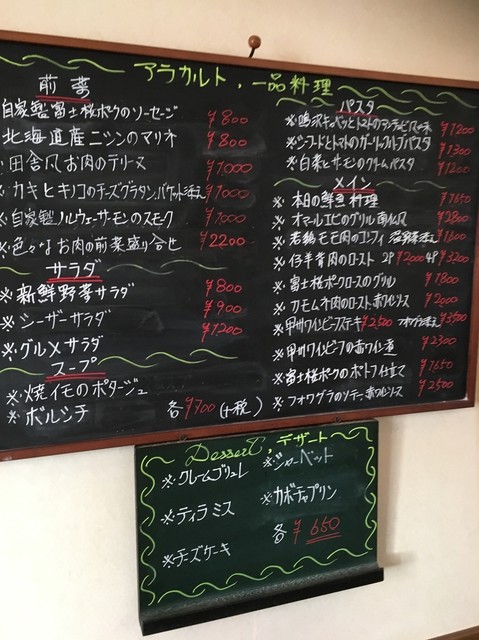 アラカルト、一品料理
前菜
自家製富士桜ポークのソーセージ ¥800
北海道産ニシンのマリオ ¥800
※田舎風お肉のテリーヌ ¥1000
※カキとキノコのチーズグラタン、バケット添え ¥1000
※自家製ノルウェーサーモンのスモーク ¥1000
※色々なお肉の前菜盛り合せ ¥2200
サラダ
※新鮮野菜サラダ ¥800
※シーザーサラダ ¥900
※グルメサラダ ¥1200
スープ
※焼イモのポタージュ
※ボルシチ 各¥700(+税)
パスタ
※鳴沢キャベツとトマトのアンチョビ ¥1200
※シーフードとトマトのガーリックハーブパスタ ¥1300
※白菜とサーモンのクリームパスタ ¥1200
メイン
※本日の鮮魚料理 ¥1650
※オマールエビのグリル ¥2800
※若鶏モモ肉のコンフィ ¥1600
※仔羊背肉のロースト 2P ¥2000 4P ¥3200
※富士桜ポークロースのグリル ¥1800
※カモムネ肉のロースト赤ワインソース ¥2000
※甲州ワインビーフステーキ ¥2500 フォアグラ添え ¥3500
※甲州ワインビーフの赤ワイン煮 ¥2300
※富士桜ポークのポトフ仕立て ¥1650
※フォワグラのソテー、赤ワインソース ¥2500
Dessert、デザート
※クレームブリュレ
※ティラミス
※チーズケーキ
※シャーベット
※カボチャプリン
各 ¥650